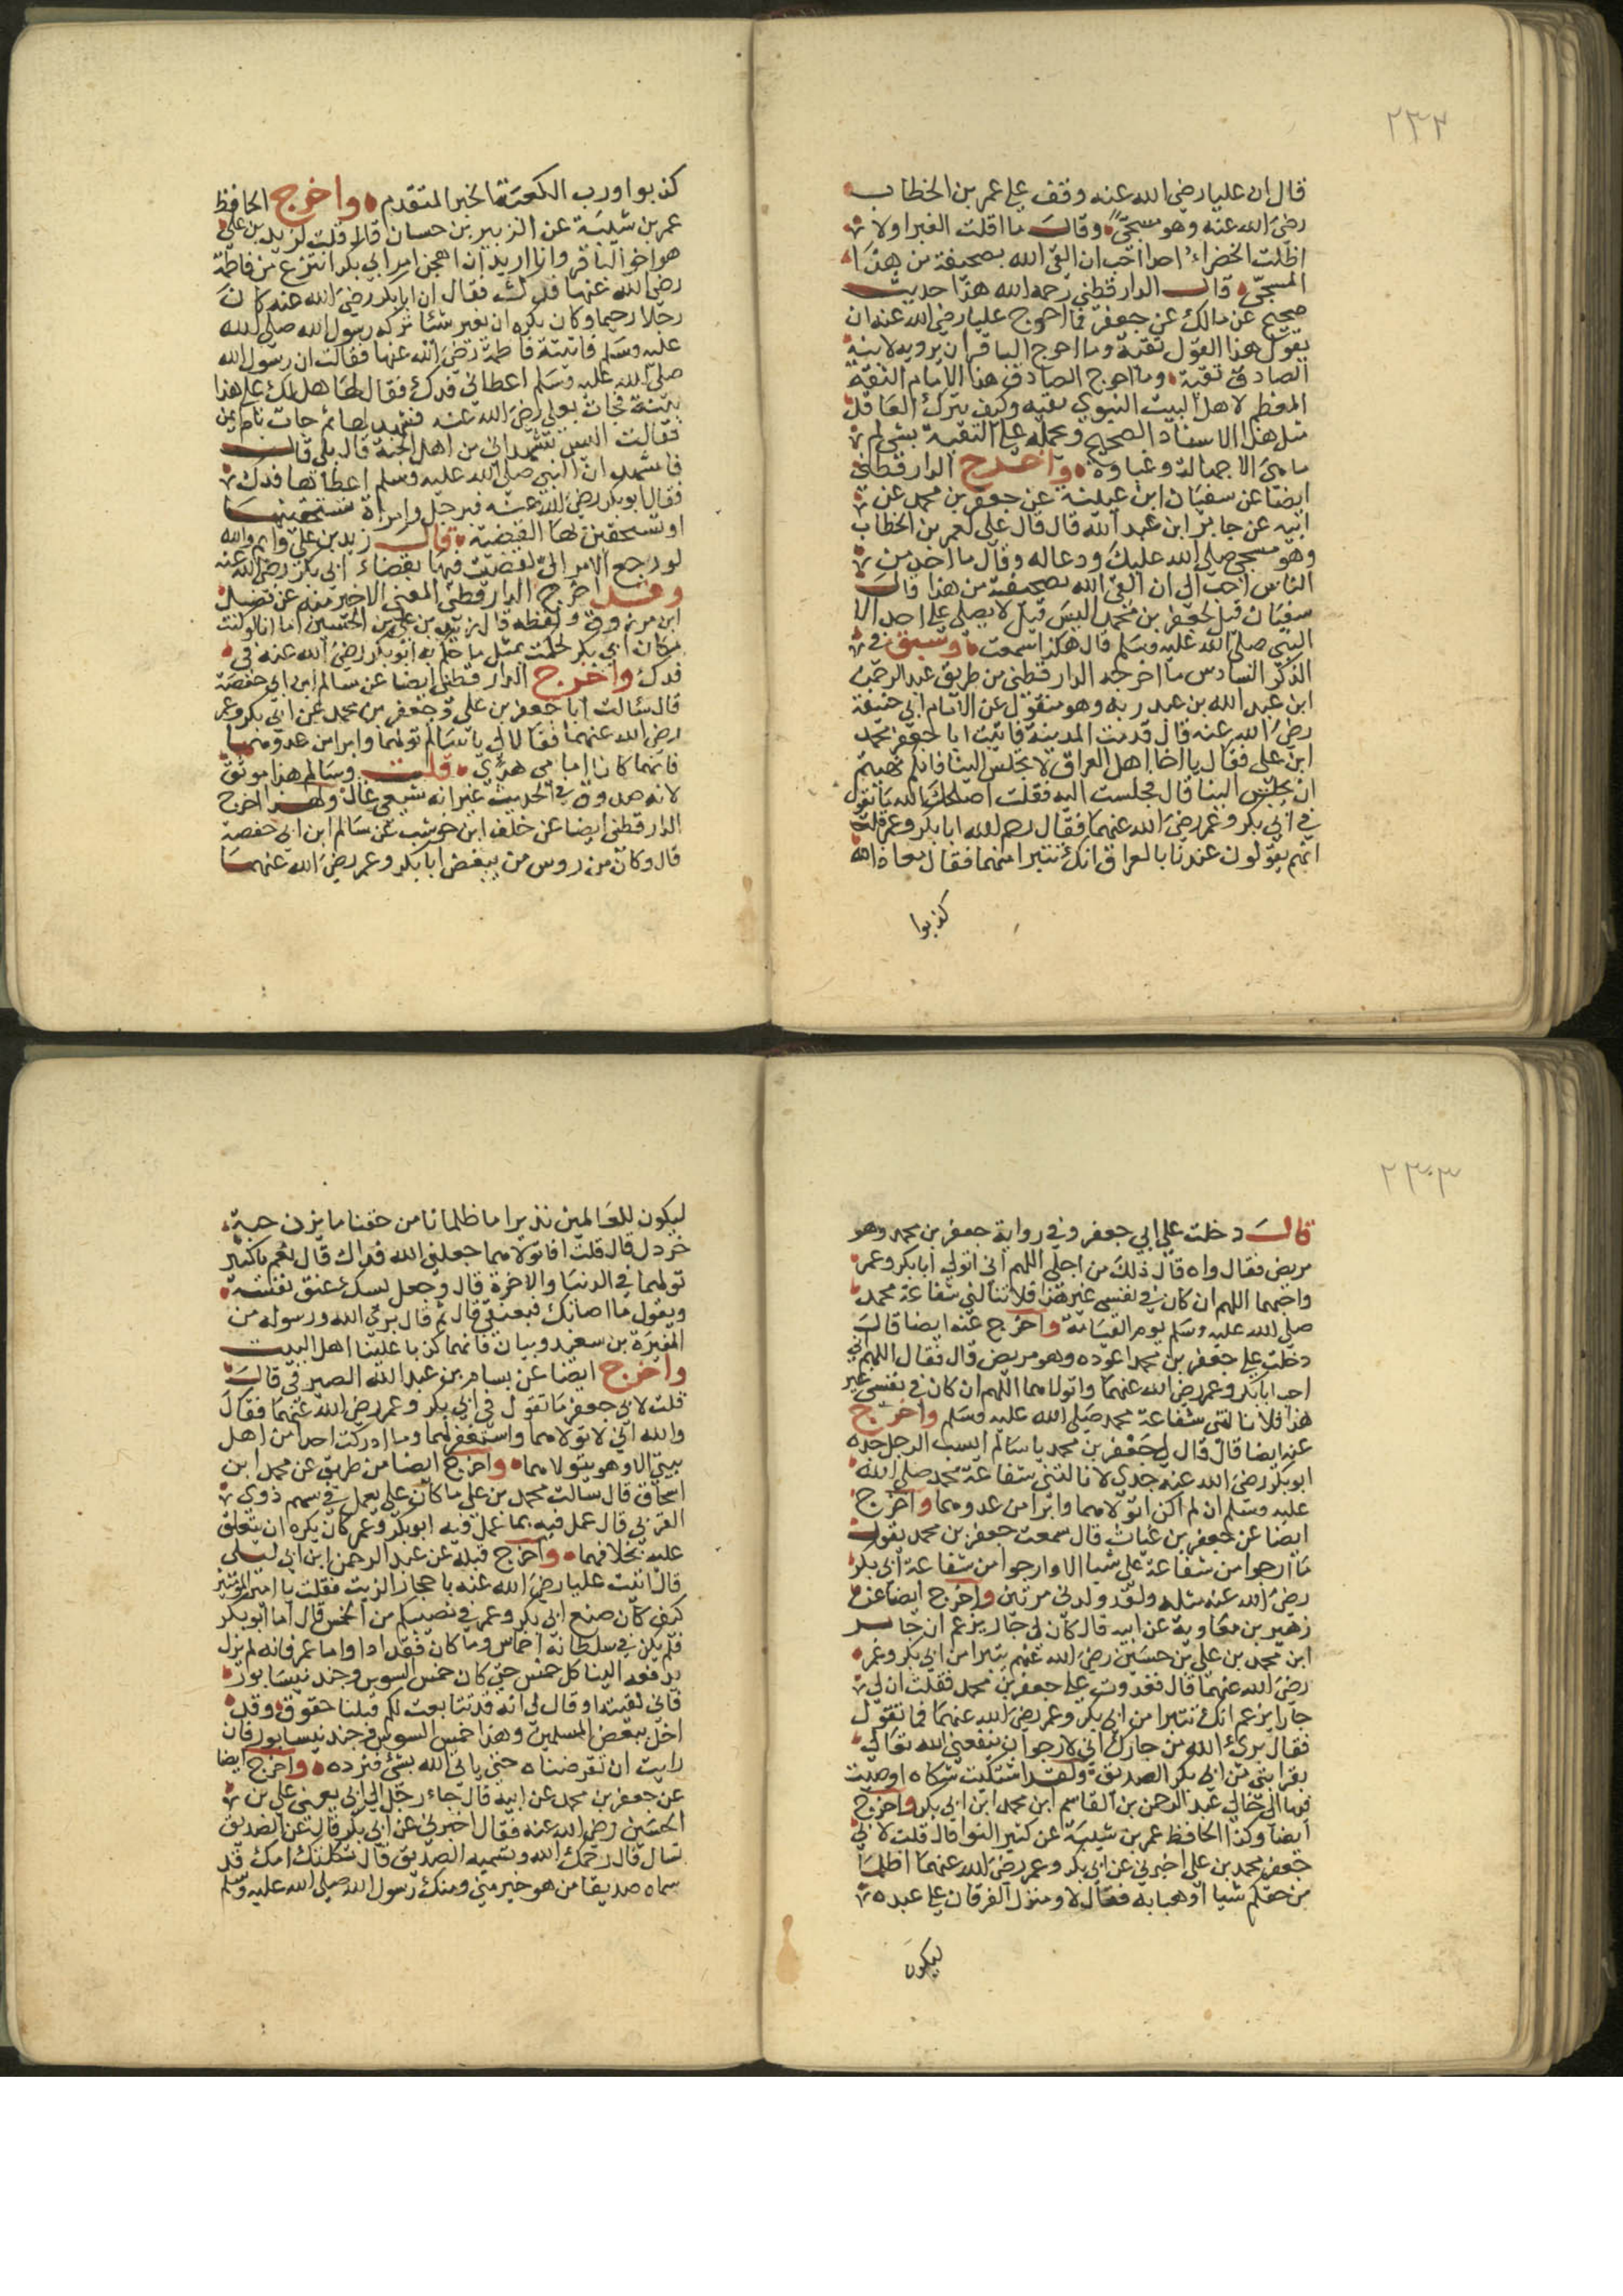 ٢٣٢
قال ان عليا رضي الله عنه وقف علي عمر بن الخطاب
رضي الله عنه وهو مسجّى وقال ما اقلت الغبرا ولا
اظلت الخضراء احدا احب ان القى الله بصحيفة من هذا
المسجّى قال الدارقطني رحمه الله هذا حديث
صحيح عن مالك عن جعفر فما احوج عليا رضي الله عنه ان
يقول هذا القول تقية وما احوج الباقر ان يرويه لابنه
الصادق تقية وما احوج الصادق هذا الامام الثقة
المعظم لاهل البيت النبوي بقيه وكيف يترك العاقل
مثل هذا الاسناد الصحيح ويحمله على التقية بشى لم
ما هي الا جهالة وغباوة واخرج الدارقطني
ايضا عن سفيان ابن عيينة عن جعفر بن محمد عن
ابيه عن جابر ابن عبد الله قال قال علي لعمر بن الخطاب
وهو مسجى صلى الله عليك ودعا له وقال ما احد من
الناس احب الى ان القى الله بصحيفته من هذا قال
سفيان قيل لجعفر بن محمد اليس قيل لا يصلى على احد الا
النبي صلى الله عليه وسلم قال هكذا سمعت وسبق في
الذكر السادس ما اخرجه الدارقطني من طريق عبد الرحمن
ابن عبد الله بن عبد ربه وهو منقول عن الامام ابي حنيفة
رضي الله عنه قال قدمت المدينة فاتيت ابا جعفر محمد
ابن علي فقال يا اخا اهل العراق لا تجلس الينا فانكم نهيتم
ان يجلس الينا قال فجلست اليه فقلت اصلحك الله ما تقول
في ابي بكر وعمر رضي الله عنهما فقال رحم الله ابا بكر وعمر قلت
انهم يقولون عندنا بالعراق انك تتبرا منهما فقال معاذ الله
كذبوا
كذبوا ورب الكعبة الخبر المتقدم واخرج الحافظ
عمر بن شيبة عن الزبير بن حسان قال قلت لزيد بن علي
هو اخو الباقر وانا اريد ان اهجن امر ابي بكر انتزع من فاطمة
رضي الله عنها فدك فقال ان ابا بكر رضي الله عنه كان
رجلا رحيما وكان يكره ان يغير شئا تركه رسول الله صلى الله
عليه وسلم فاتيته فاطمة رضي الله عنها فقالت ان رسول الله
صلى الله عليه وسلم اعطاني فدك فقال لها هل لك على هذا
بينة فجات بعلي رضي الله عنه فشهد لها ثم جات بام ايمن
فقالت اليس تشهد اني من اهل الجنة قال بلى قالت
فاشهد ان النبي صلى الله عليه وسلم اعطاها فدك
فقال ابو بكر رضي الله عنه فبرجل وامراة تستحقينها
او تستحقين بها القضية قال زيد بن علي وايم والله
لو رجع الامر الي لقضيت فيها بقضاء ابي بكر رضي الله عنه
وقد اخرج الدارقطني المعنى الاخير منه عن فضيل
ابن مرزوق ولفظه قال زيد بن علي بن الحسين اما انا لو كنت
مكان ابي بكر لحكمت بمثل ما حكم به ابو بكر رضي الله عنه في
فدك واخرج الدارقطني ايضا عن سالم ابن ابي حفصة
قال سالت ابا جعفر بن علي وجعفر بن محمد عن ابي بكر وعمر
رضي الله عنهما فقالا لي يا سالم تولهما وابرا من عدوهما
فانهما كانا اما مي هدي قلت وسالم هذا موثق
لانه صدوق في الحديث غير انه شيعي غال ولهذا اخرج
الدارقطني ايضا عن خلف ابن حوشب عن سالم ابن ابي حفصة
قال وكان من روس من يبغض ابا بكر وعمر رضي الله عنهما
٢٣٣
قال دخلت على ابي جعفر وفي رواية جعفر بن محمد وهو
مريض فقال واه قال ذلك من اجلي اللهم اني اتولى ابا بكر وعمر
واحبهما اللهم ان كان في نفسي غير هذا فلا تنالني شفاعة محمد
صلى الله عليه وسلم يوم القيامة واخرج عنه ايضا قال
دخلت على جعفر بن محمد اعوده وهو مريض قال فقال اللهم اني
احب ابا بكر وعمر رضي الله عنهما واتولاهما اللهم ان كان في نفسي غير
هذا فلا نالتني شفاعة محمد صلى الله عليه وسلم واخرج
عنه ايضا قال قال لي جعفر بن محمد يا سالم ايسب الرجل جده
ابو بكر رضي الله عنه جدي لا نالتني شفاعة محمد صلى الله
عليه وسلم ان لم اكن اتولاهما وابرا من عدوهما واخرج
ايضا عن جعفر بن غياث قال سمعت جعفر بن محمد يقول
ما ارجوا من شفاعة علي شيا الا وارجوا من شفاعة ابي بكر
رضي الله عنه مثله ولقد ولدني مرتين واخرج ايضا عن
زهير بن معاوية عن ابيه قال كان لي جار يزعم ان جعفر
ابن محمد بن علي بن حسين رضي الله عنهم يتبرا من ابي بكر وعمر
رضي الله عنهما قال فغدوت على جعفر بن محمد فقلت ان لي
جارا يزعم انك تتبرا من ابي بكر وعمر رضي الله عنهما فما تقول
فقال برئ الله من جارك اني لارجوا ان ينفعني الله تعالى
بقرابتي من ابي بكر الصديق ولقد اشتكيت شكاه اوصيت
فيها الى خالي عبد الرحمن بن القاسم ابن محمد ابن ابي بكر واخرج
ايضا وكذا الحافظ عمر بن شيبة عن كثير النوا قال قلت لابي
جعفر محمد بن علي اخبرني عن ابي بكر وعمر رضي الله عنهما اظلما
من حقكم شيا او ذهبا به فقال لا ومنزل الفرقان على عبده
ليكون
ليكون للعالمين نذيرا ما ظلمانا من حقنا ما يزن حبة
خردل قال قلت افاتولاهما جعلني الله فداك قال نعم يا كثير
تولهما في الدنيا والاخرة قال وجعل يسك عنق نفسه
ويقول ما اصابك فبعنقي قال ثم قال برئ الله ورسوله من
المغيرة بن سعيد وبيان فانهما كذبا علينا اهل البيت
واخرج ايضا عن بسام بن عبد الله الصيرفي قال
قلت لابي جعفر ما تقول في ابي بكر وعمر رضي الله عنهما فقال
والله اني لاتولاهما واستغفر لهما وما ادركت احدا من اهل
بيتي الا وهو يتولاهما واخرج ايضا من طريق عن محمد ابن
اسحاق قال سالت محمد بن علي ما كان علي يعمل في سهم ذوي
القربى قال عمل فيه بما عمل فيه ابو بكر وعمر كان يكره ان يتعلق
عليه بخلافهما واخرج قبله عن عبد الرحمن ابن ابي ليلى
قال اتيت عليا رضي الله عنه باحجار الزيت فقلت يا امير المومنين
كيف كان صنع ابي بكر وعمر في نصيبكم من الخمس قال اما ابو بكر
فلم يكن في سلطانه اخماس وما كان فقد ادا واما عمر فانه لم يزل
يدفعه الينا كل خمس حتى كان خمس السوس وجند نيسابور
فاني لقيته او قال لي انه قد تتابعت لكم قبلنا حقوق وقد
اخل ببعض المسلمين وهذا خمس السوس وجند نيسابور فان
رايت ان تقرضناه حتى ياتي الله بشئ فنرده واخرج ايضا
عن جعفر بن محمد عن ابيه قال جاء رجل الى ابي يعني علي بن
الحسين رضي الله عنه فقال اخبرني عن ابي بكر قال عن الصديق
تسال قال رحمك الله وتسميه الصديق قال ثكلتك امك قد
سماه صديقا من هو خير مني ومنك رسول الله صلى الله عليه وسلم